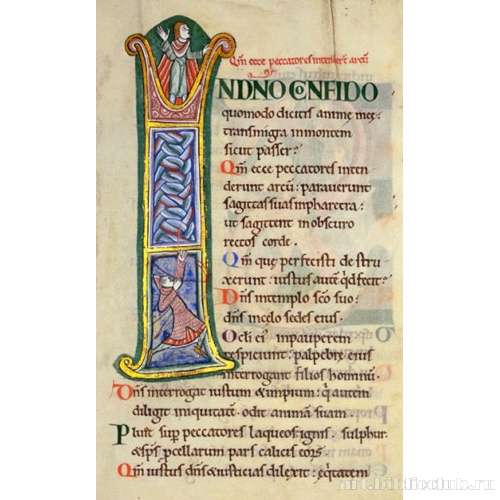 Qm ecce peccatores intender̄t arcū
IN DNO CONFIDO
quomodo dicitis anime mee:
transmigra inmontem
sicut passer?
Qm ecce peccatores inten
derunt arcū: parauerunt
sagittas suas inpharetra:
ut sagittent inobscuro
rectos corde.
Qm que perfecisti destru
xerunt: iustus aute qd fecit?
Dns intemplo sco suo:
dns incelo sedes eius.
Oculi ei inpauperem
respiciunt: palpebre eius
interrogant filios hominū.
Dns interrogat iustum & impium: qui autem
diligit iniquitatē odit animā suam.
Pluet sup peccatores laqueos ignis sulphur
& sps pcellarum pars calicis eorū
Qm iustus dns & iusticias dilexit: equitatem
art.biblioclub.ru